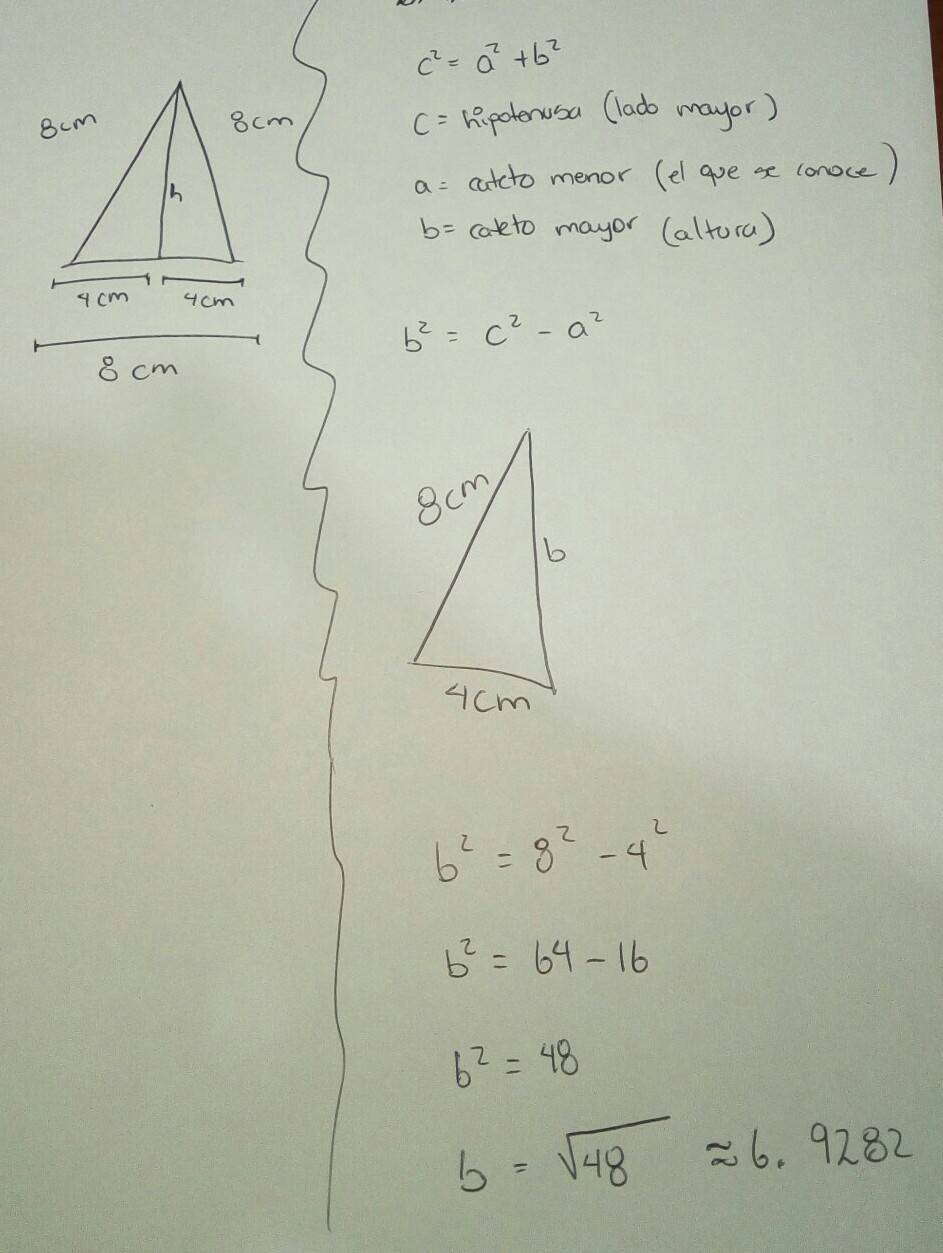 8cm 8cm
h
4cm 4cm
8 cm
c² = a² + b²
C = hipotenusa (lado mayor)
a = cateto menor (el que se conoce)
b = cateto mayor (altura)
b² = c² - a²
8cm
b
4cm
b² = 8² - 4²
b² = 64 - 16
b² = 48
b = √48 ≈ 6. 9282